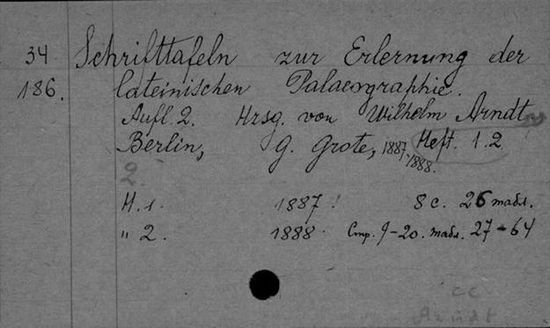 34 Schrifttafeln zur Erlernung der
186. lateinischen Palaeographie.
Aufl. 2. Hrsg. von Wilhelm Arndt
Berlin, G. Grote, 1887-1888. Heft. 1.2
2.
H. 1. 1887. 8 с. 26 табл.
" 2. 1888. Стр. 9-20. табл. 27-64
Arndt